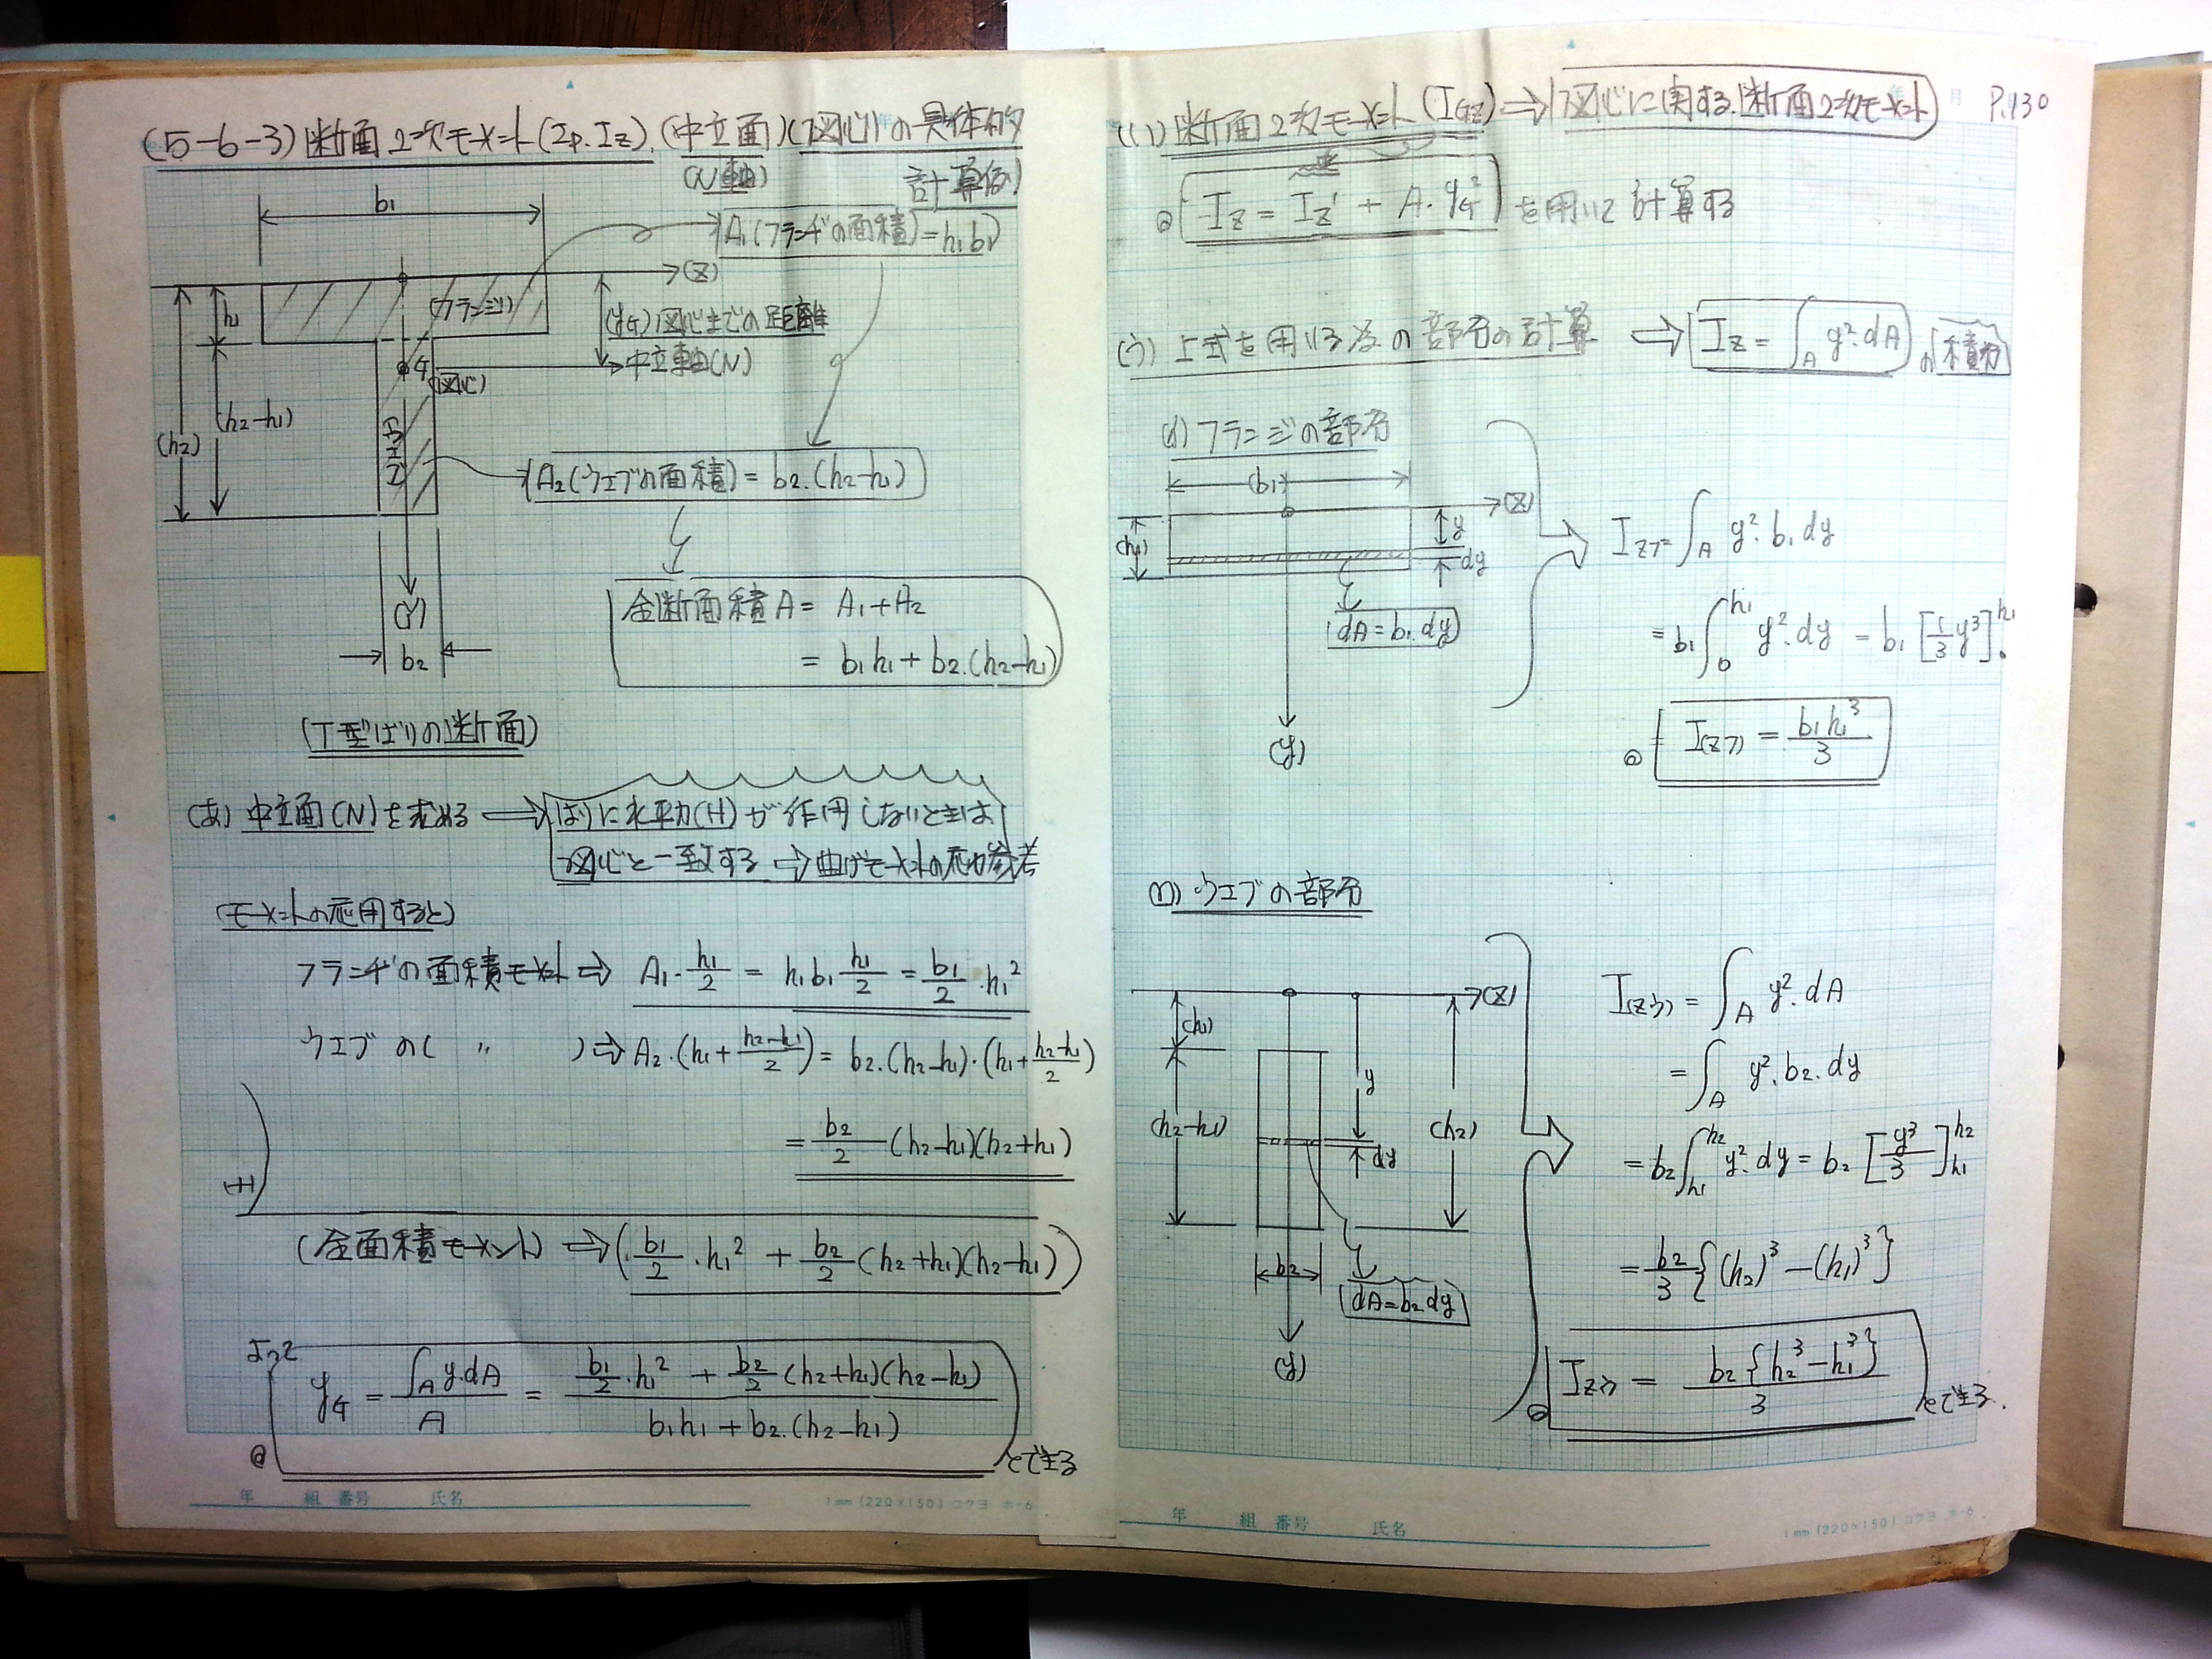 (5-6-3) 断面2次モーメント(Ip.Iz).(中立面)(図心)の具体的
(N軸) 計算例)
b1
A1(フランヂの面積)=h1b1
(Z)
h1
(フランジ)
(yG)図心までの距離
中立軸(N)
G
(図心)
(h2)
(h2-h1)
ウエブ
A2(ウェブの面積)= b2.(h2-h1)
(Y)
b2
全断面積A = A1+A2
= b1h1+b2.(h2-h1)
(T型ばりの断面)
(あ) 中立面(N)を求める ⇒ はりに水平力(H)が作用しないときは
図心と一致する ⇒ 曲げモーメントの応力参考
(モーメントの応用すると)
フランヂの面積モーメント ⇒ A1・h1/2 = h1b1 h1/2 = b1/2・h1²
ウエブの( 〃 ) ⇒ A2・(h1+(h2-h1)/2) = b2.(h2-h1)・(h1+(h2-h1)/2)
= b2/2 (h2-h1)(h2+h1)
+)
(全面積モーメント) ⇒ (b1/2・h1² + b2/2(h2+h1)(h2-h1))
よって
yG = ∫A y.dA / A = (b1/2・h1² + b2/2(h2+h1)(h2-h1)) / (b1h1+b2.(h2-h1))
とできる
年 組 番号 氏名
1mm(220×150) コクヨ ホ-6
月 P.130
(い) 断面2次モーメント(IGz) ⇒ 図心に関する.断面2次モーメント
Iz = Iz' + A・yG² を用いて計算する
(う) 上式を用いる為の部分の計算 ⇒ Iz = ∫A y²・dA の積分
(イ) フランジの部分
(b1)
(Z)
(h1)
y
dy
dA=b1.dy
(y)
Izフ= ∫A y²・b1 dy
= b1∫0h1 y²・dy = b1 [1/3 y³]0h1
I(zフ) = b1h1³/3
(ロ) ウエブの部分
(Z)
(h1)
y
(h2-h1)
(h2)
dy
b2
dA=b2.dy
(y)
I(zウ) = ∫A y².dA
= ∫A y².b2.dy
= b2∫h1h2 y².dy = b2 [y³/3]h1h2
= b2/3 {(h2)³-(h1)³}
Izウ = b2{h2³-h1³}/3 とできる.
年 組 番号 氏名
1mm(220×150) コクヨ ホ-6